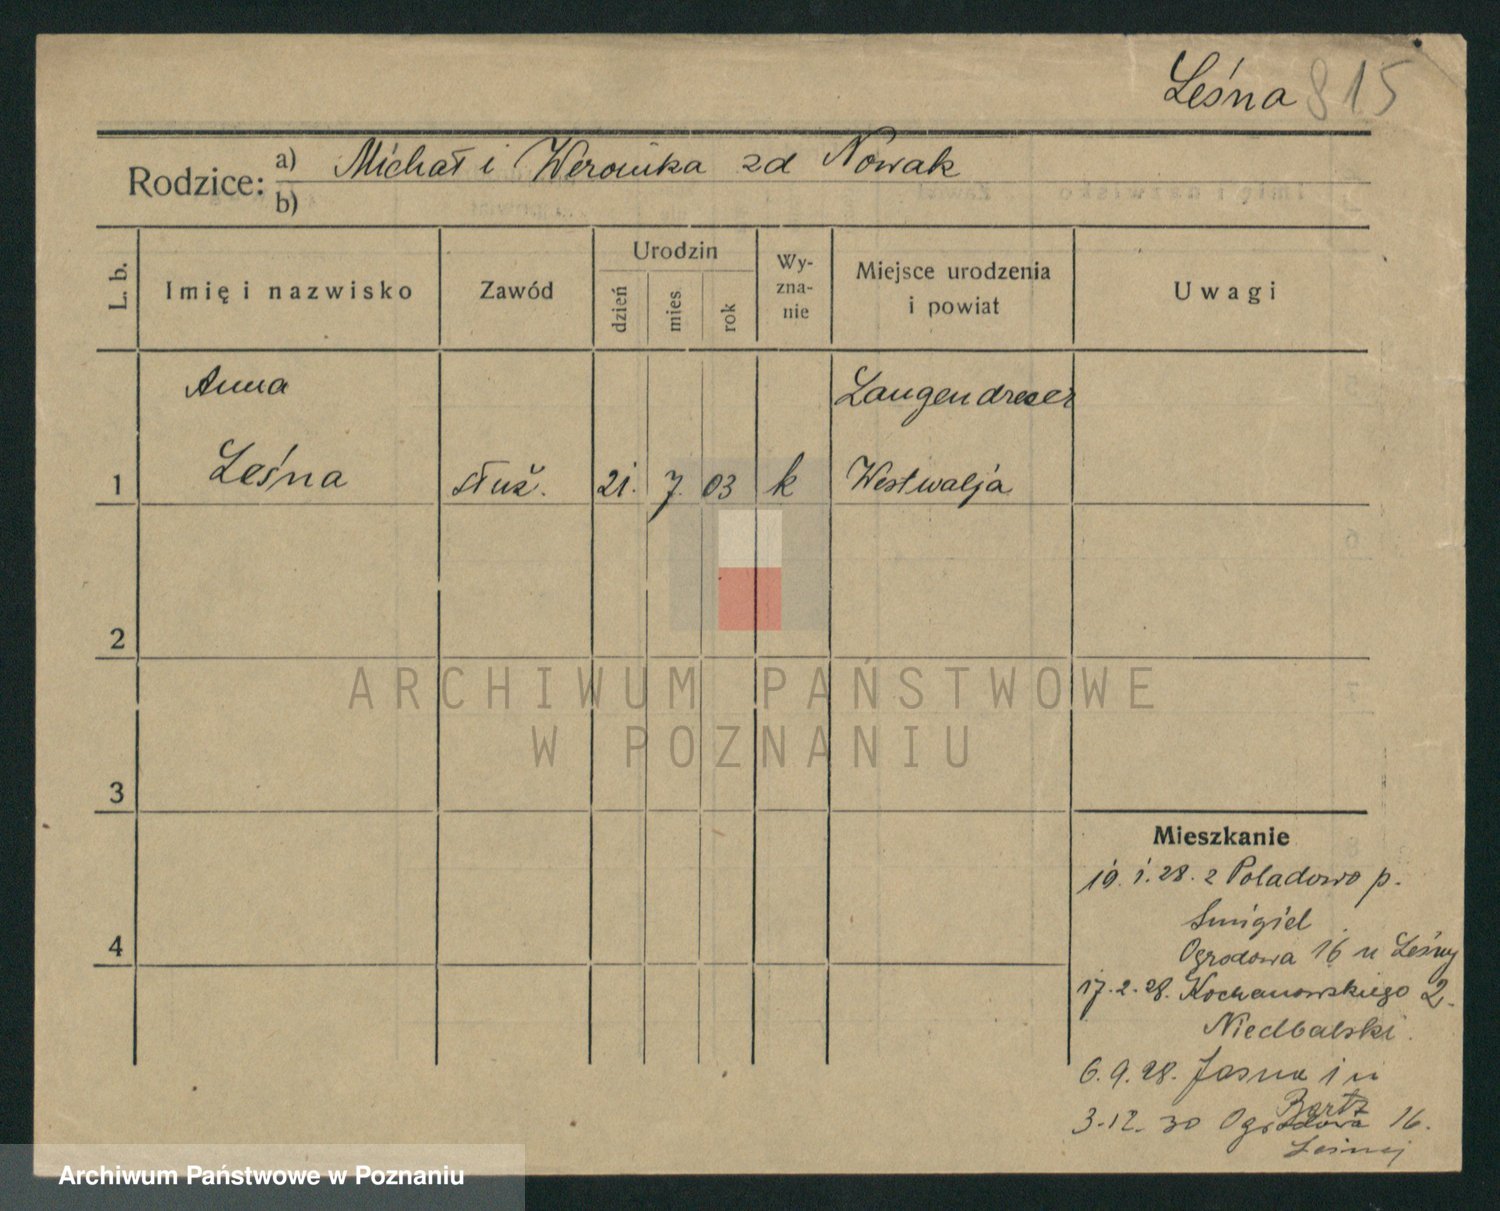 Leśna 815
Rodzice: a) Michał i Weronika zd Nowak
b)
L. b.
Imię i nazwisko
Zawód
Urodzin
dzień
mies.
rok
Wy-
zna-
nie
Miejsce urodzenia
i powiat
Uwagi
Anna
Langendreer
1 Leśna służ. 21. 7. 03 k Westwalja
2
3
4
Mieszkanie
19. 1. 28. z Poladowo p.
Śmigiel
Ogrodowa 16 u Leśny
17. 2. 28. Kochanowskiego 2.
Niedbalski.
6. 9. 28. Jasna 1 u
Bartz
3.12. 30 Ogrodowa 16.
Leśnej
ARCHIWUM PAŃSTWOWE
W POZNANIU
Archiwum Państwowe w Poznaniu